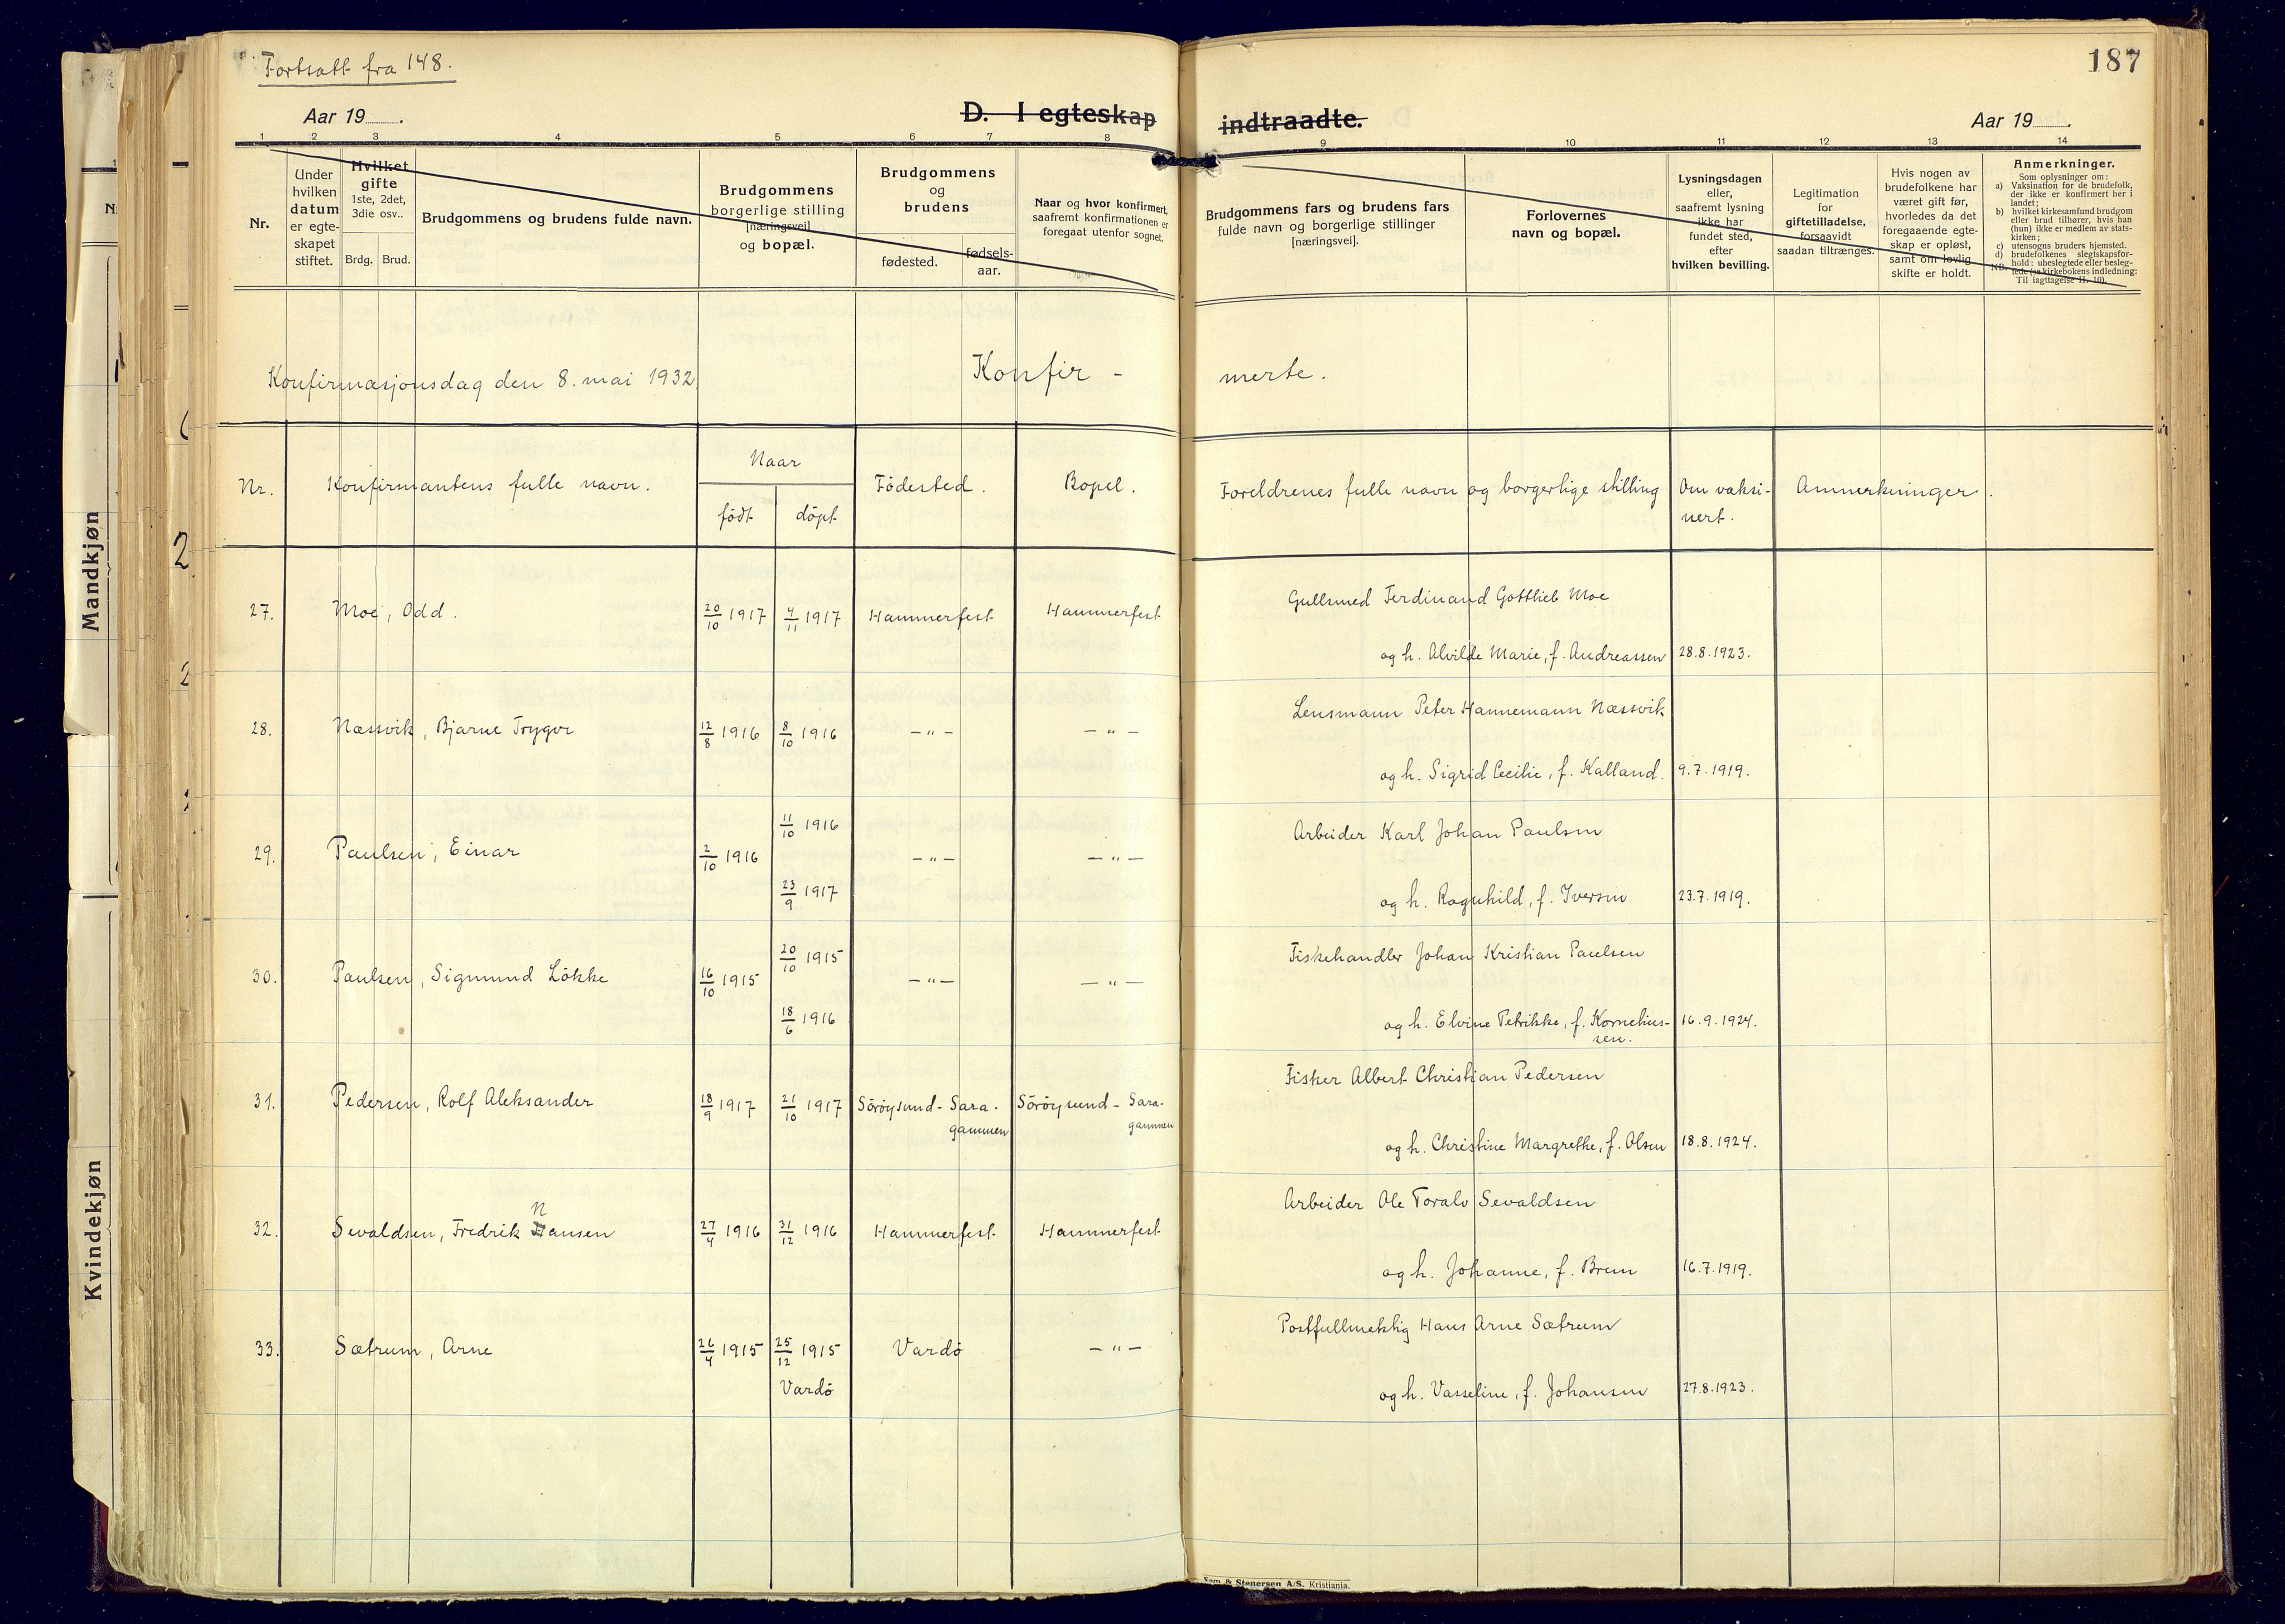 Fortsatt fra 148.
187
Aar 19 .
D. I egteskap indtraadte.
Aar 19 .
1 2 3 4 5 6 7 8 9 10 11 12 13 14
Nr.
Under hvilken datum er egte- skapet stiftet.
Hvilket gifte 1ste, 2det, 3die osv..
Brdg. Brud.
Brudgommens og brudens fulde navn.
Brudgommens borgerlige stilling [næringsvei] og bopæl.
Brudgommens og brudens
fødested.
fødsels- aar.
Naar og hvor konfirmert, saafremt konfirmationen er foregaat utenfor sognet.
Brudgommens fars og brudens fars fulde navn og borgerlige stillinger [næringsvei].
Forlovernes navn og bopæl.
Lysningsdagen eller, saafremt lysning ikke har fundet sted, efter hvilken bevilling.
Legitimation for giftetilladelse, forsaavidt saadan tiltrænges.
Hvis nogen av brudefolkene har været gift før, hvorledes da det foregaaende egte- skap er opløst, samt om lovlig skifte er holdt.
Anmerkninger.
Som oplysninger om:
a) Vaksination for de brudefolk, der ikke er konfirmert her i landet;
b) hvilket kirkesamfund brudgom eller brud tilhører, hvis han (hun) ikke er medlem av stats- kirken;
c) utensogns bruders hjemsted.
d) brudefolkenes slegtskapsfor- hold: ubeslegtede eller besleg- tede (se kirkebokens indledning:
NB.
Til iagttagelse II. 10).
Konfirmasjonsdag den 8. mai 1932.
Konfir - merte.
Nr.
Konfirmantens fulle navn.
Naar
født
døpt
Fødested.
Bopel.
Foreldrenes fulle navn og borgerlige stilling
Om vaksi- nert.
Anmerkninger.
27. Moe, Odd. 20/10 1917 4/11 1917 Hammerfest Hammerfest Gullsmed Ferdinand Gottlieb Moe
og h. Alvilde Marie, f. Andreassen 28.8.1923.
28. Næssvik, Bjarne Trygve 12/8 1916 8/10 1916 — " — — " — Lensmann Peter Hannemann Næssvik
og h. Sigrid Cecilie, f. Kalland. 9.7.1919.
29. Paulsen, Einar 2/10 1916 11/10 1916 23/9 1917 — " — — " — Arbeider Karl Johan Paulsen
og h. Ragnhild, f. Iversen 23.7.1919.
30. Paulsen, Sigmund Løkke 16/10 1915 20/10 1915 18/6 1916 — " — — " — Fiskehandler Johan Kristian Paulsen
og h. Elvine Petrikke, f. Kornelius- sen. 16.9.1924.
31. Pedersen, Rolf Aleksander 18/9 1917 21/10 1917 Sørøysund - Sara- gammen Sørøysund - Sara- gammen Fisker Albert Christian Pedersen
og h. Christine Margrethe, f. Olsen 18.8.1924.
32. Sevaldsen, Fredrik Nansen 27/4 1916 31/12 1916 Hammerfest Hammerfest Arbeider Ole Toralv Sevaldsen
og h. Johanne, f. Brun 16.7.1919.
33. Sætrum, Arne 26/4 1915 25/12 1915 Vardø Vardø — " — Postfullmektig Hans Arne Sætrum
og h. Vasseline, f. Johansen 27.8.1923.
Mandkjøn
Kvindekjøn
& Stenersen A/S. Kristiania.